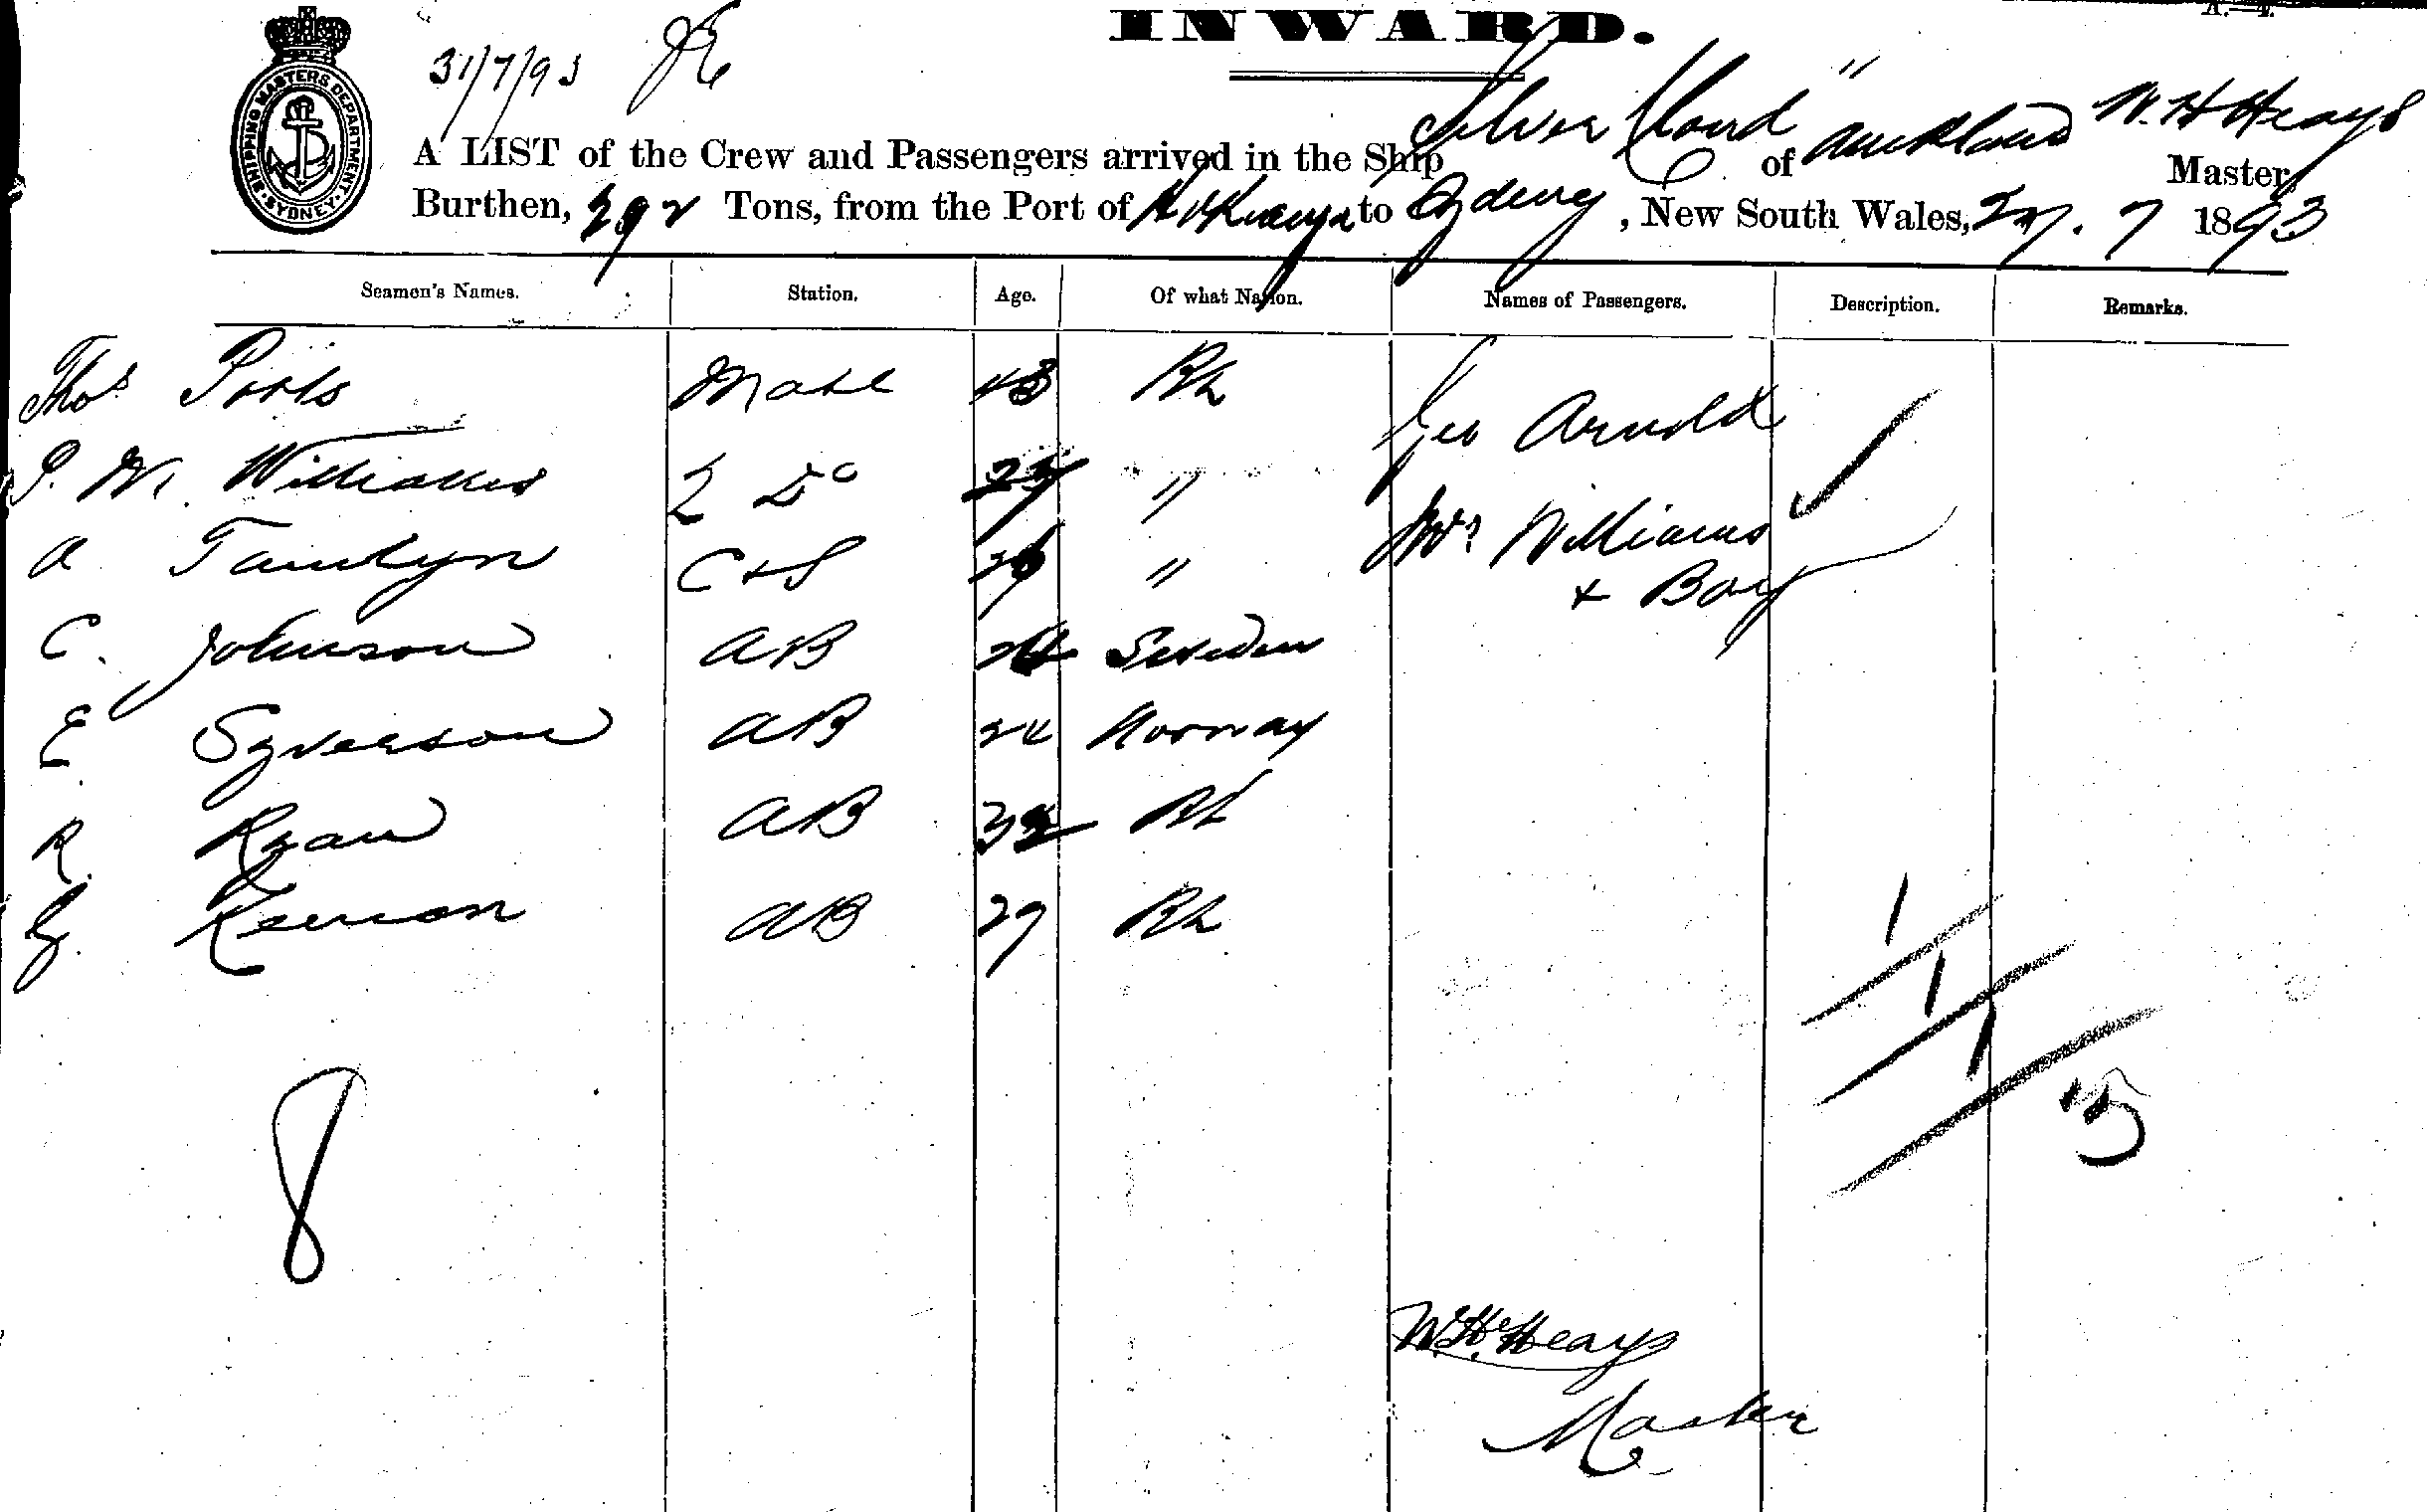 INWARD.
31/7/93
SHIPPING MASTERS DEPARTMENT SYDNEY
A LIST of the Crew and Passengers arrived in the Ship Silver Cloud" of Auckland W. H Heays Master,
Burthen, 292 Tons, from the Port of to Sydney, New South Wales, 27. 7 1893
Seamen's Names. Station. Age. Of what Nation. Names of Passengers. Description. Remarks.
Thos Mate 48 Bh Geo Arnold
P. W. Williams 2 Do "
Mrs Williams
A Tamlyn C & S "
+ Boy
C. Johnson AB Sweden
E Syverson AB 24 Norway
R. Ryan AB Bh
G. Keenon AB 29 Bh
1
1
1
8
W. H. Heays
Master